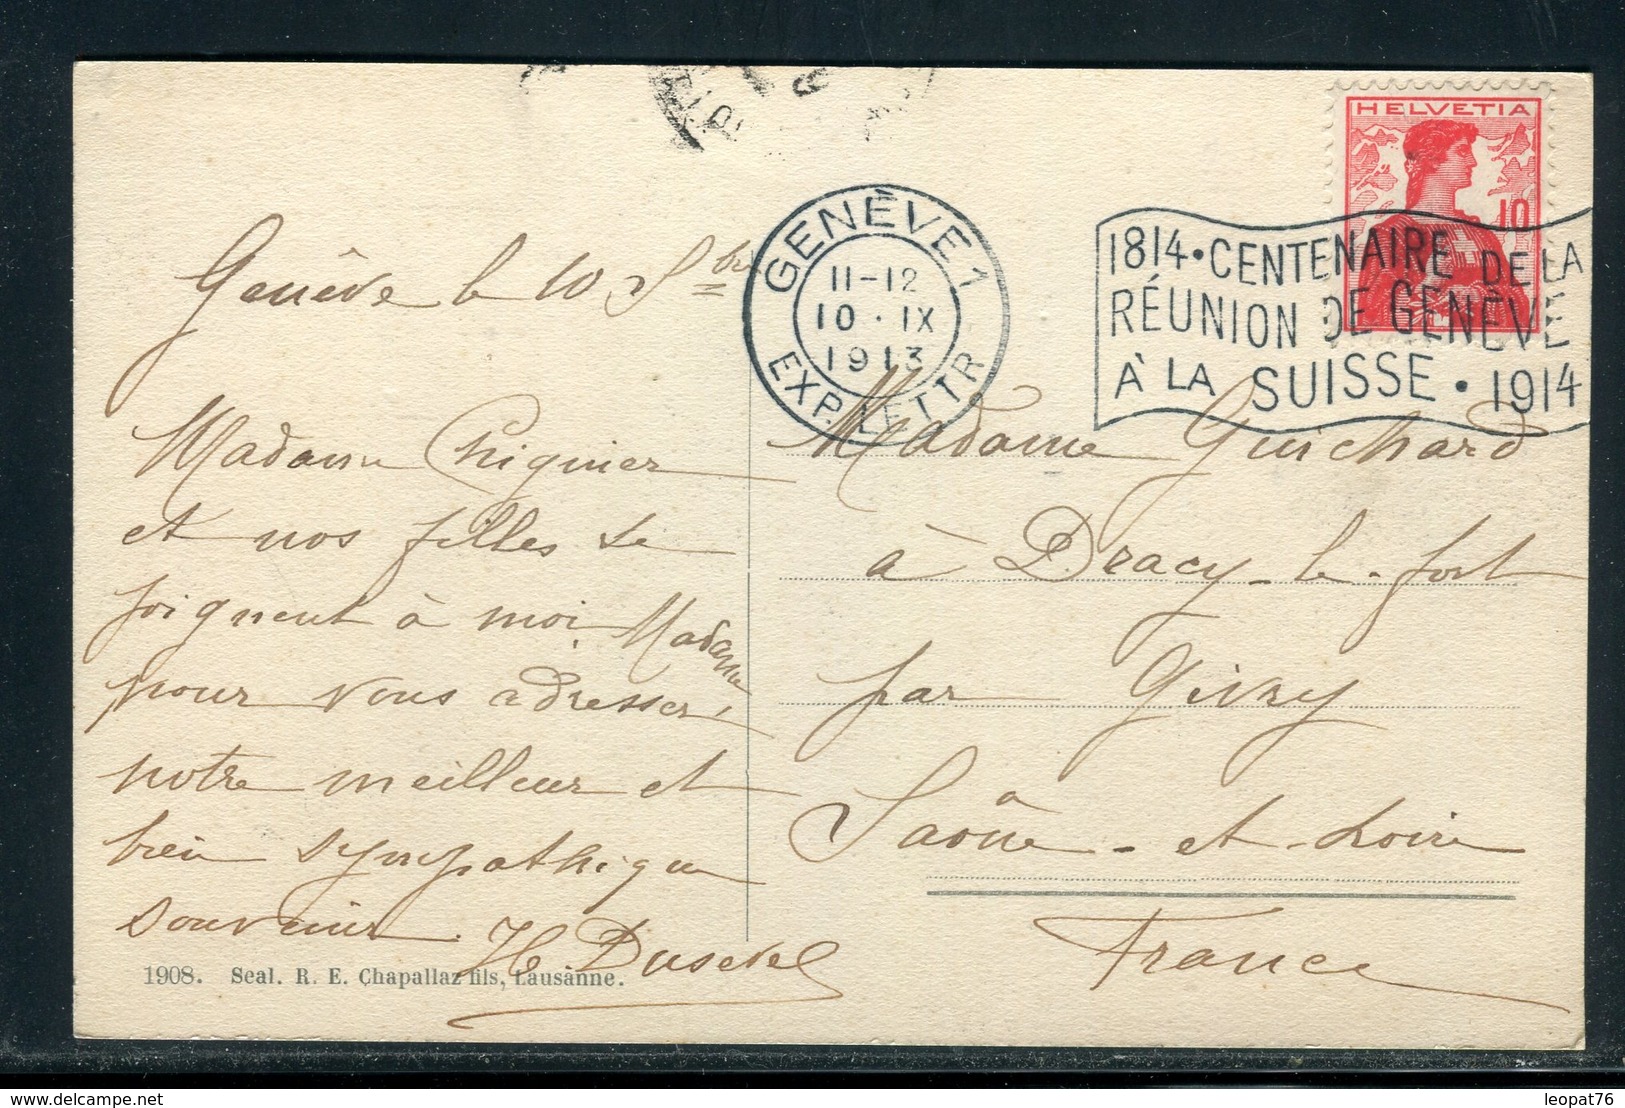 HELVETIA
10
GENÈVE 1
11-12
10·IX
1913
EXP. LETTR
1814·CENTENAIRE DE LA
RÉUNION DE GENÈVE
À LA SUISSE·1914
Genève le 10 Sbre
Madame Chignier
et nos filles se
joignent à moi, Madame
pour vous adresser,
notre meilleur et
bien sympathique
souvenir.
Madame Guichard
à Dracy-le-fort
par Givry
Saône-et-Loire
France
1908. Seal. R. E. Chapallaz fils, Lausanne.
leopat76